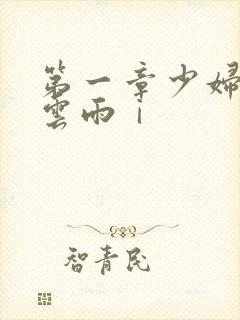 第一章少婦
雲雨1
智青民